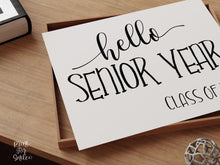 hello
SENIOR YEAR
CLASS OF